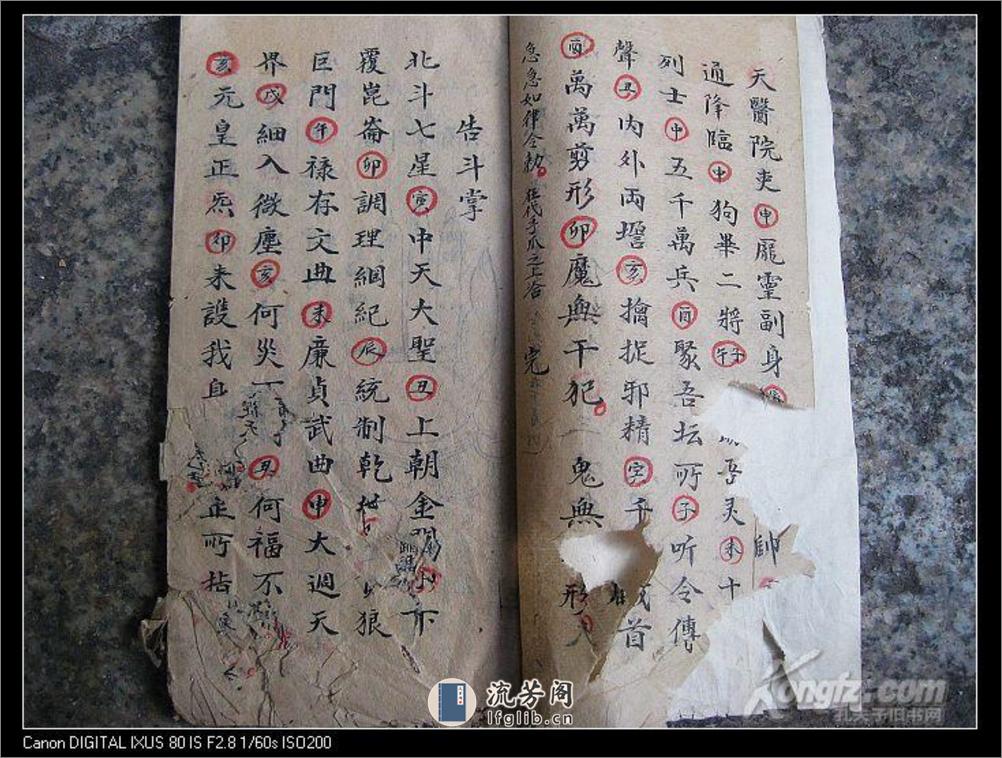 天醫院吏申龐靈副身
通降臨申狗畢二將午子 吾灵未十
列士申五千萬兵酉聚吾坛所子听令傳
聲丑內外両壇亥擒捉邪精 千 首
酉萬萬剪形卯魔無干犯 鬼無 形
急急如律令勅
完
告斗掌
北斗七星寅中天大聖丑上朝金闕 下
覆崑崙卯調理綱紀辰統制乾 狼
巨門午祿存文曲未廉貞武曲申大週天
界戌細入微塵亥何災 丑何福不
亥元皇正炁卯来護我身 正所指
流芳阁
lfglib.cn
Kongfz.com
孔夫子旧书网
Canon DIGITAL IXUS 80 IS F2.8 1/60s ISO200